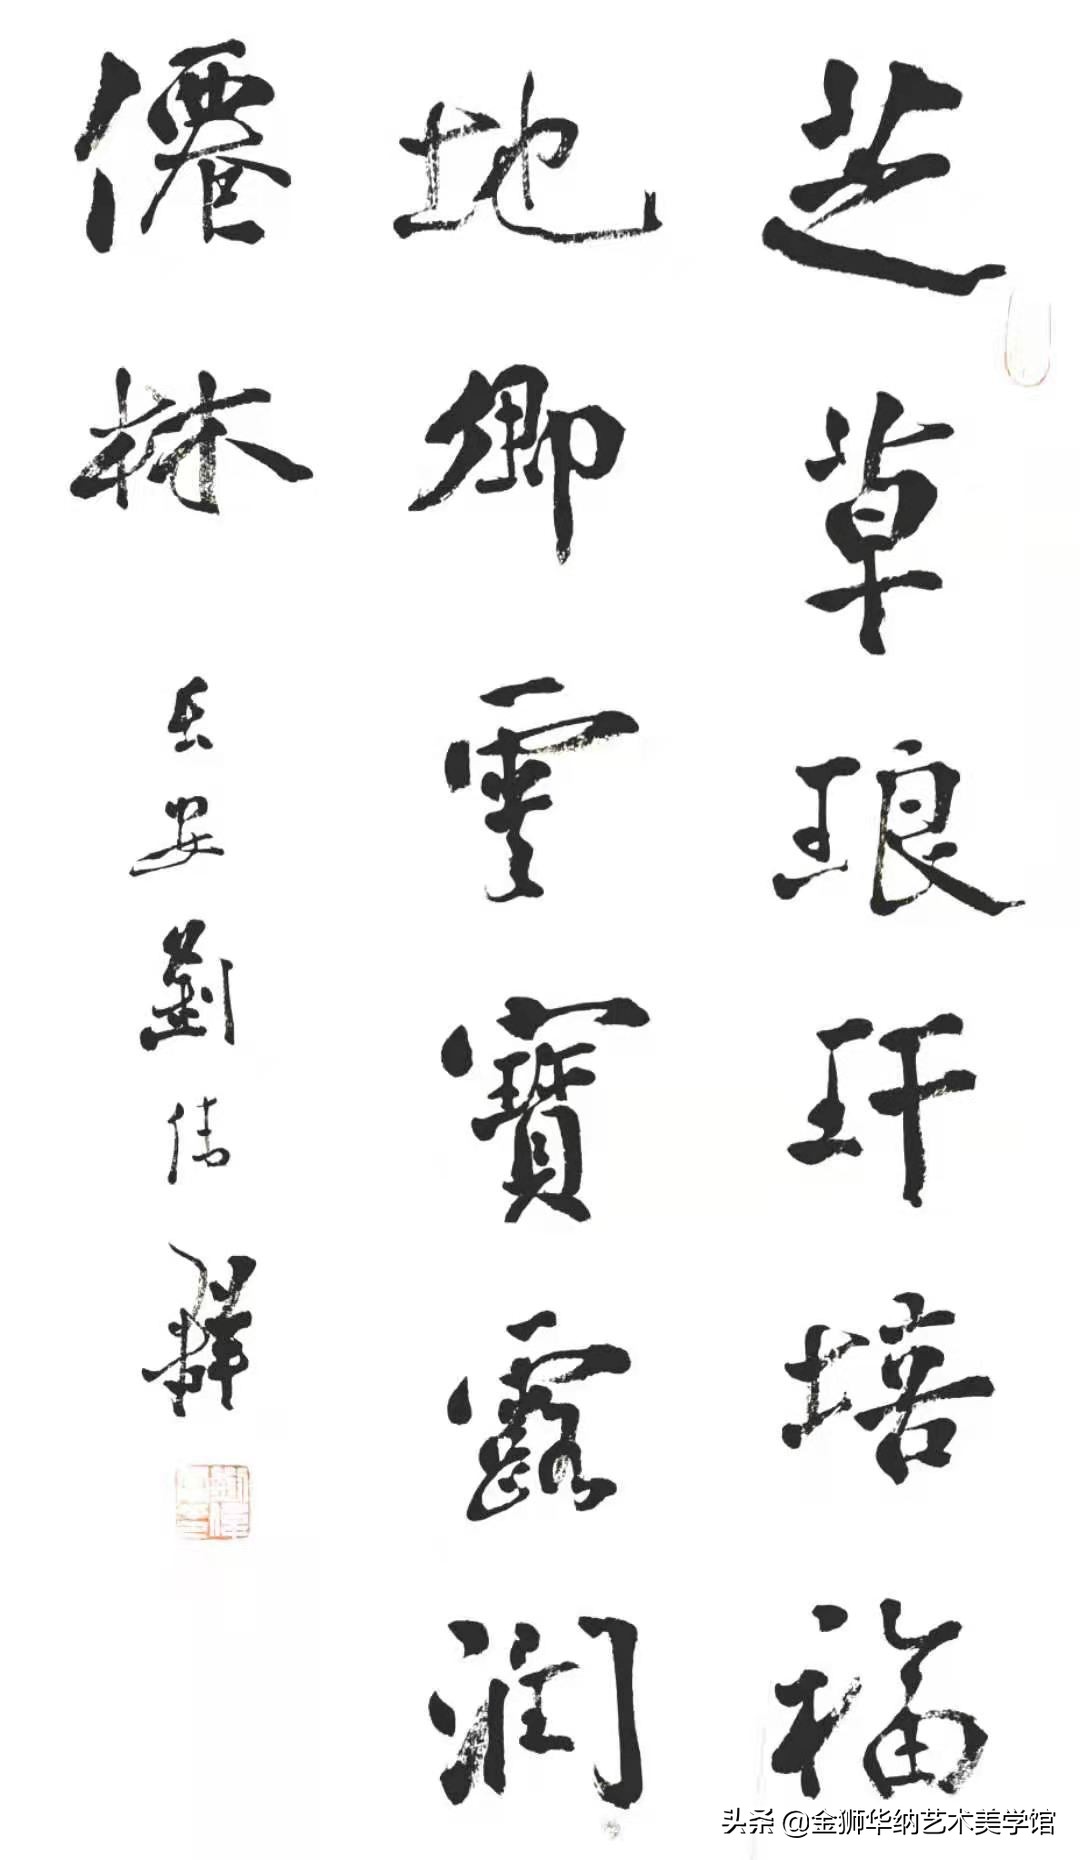 芝草琅玕培福
地卿雲寶露潤
僊林
長安劉群
头条 @金狮华纳艺术美学馆